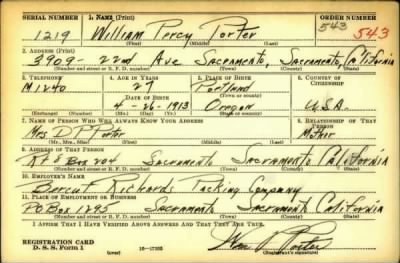 SERIAL NUMBER 1. NAME (Print) ORDER NUMBER
1219 William Percy Porter 543 543
(First) (Middle) (Last)
2. ADDRESS (Print)
3909 - 22nd Ave Sacramento, Sacramento, California
(Number and street or R. F. D. number) (Town) (County) (State)
3. TELEPHONE 4. AGE IN YEARS 5. PLACE OF BIRTH 6. COUNTRY OF CITIZENSHIP
M1240 27 Portland
DATE OF BIRTH (Town or county)
4-26-1913 Oregon U.S.A.
(Exchange) (No.) (Mo.) (Day) (Yr.) (State or country)
7. NAME OF PERSON WHO WILL ALWAYS KNOW YOUR ADDRESS 8. RELATIONSHIP OF THAT PERSON
Mrs D P Porter Mother
(Mr., Mrs., Miss) (First) (Middle) (Last)
9. ADDRESS OF THAT PERSON
Rt 8 Box 204 Sacramento Sacramento California
(Number and street or R. F. D. number) (Town) (County) (State)
10. EMPLOYER'S NAME
Bercut Richards Packing Company
11. PLACE OF EMPLOYMENT OR BUSINESS
PO Box 1295 Sacramento Sacramento California
(Number and street or R. F. D. number) (Town) (County) (State)
I AFFIRM THAT I HAVE VERIFIED ABOVE ANSWERS AND THAT THEY ARE TRUE.
REGISTRATION CARD
D. S. S. Form 1 (over) 16-17105 Porter